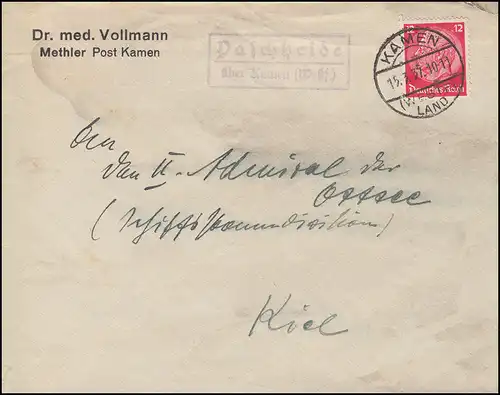 Dr. med. Vollmann
Methler Post Kamen
Paschheide
über Kamen (Westf.)
KAMEN
(WESTF)
LAND
12
Deutsches Reich
An
den II. Admiral der
Ostsee
(Schiffsstammdivision)
Kiel